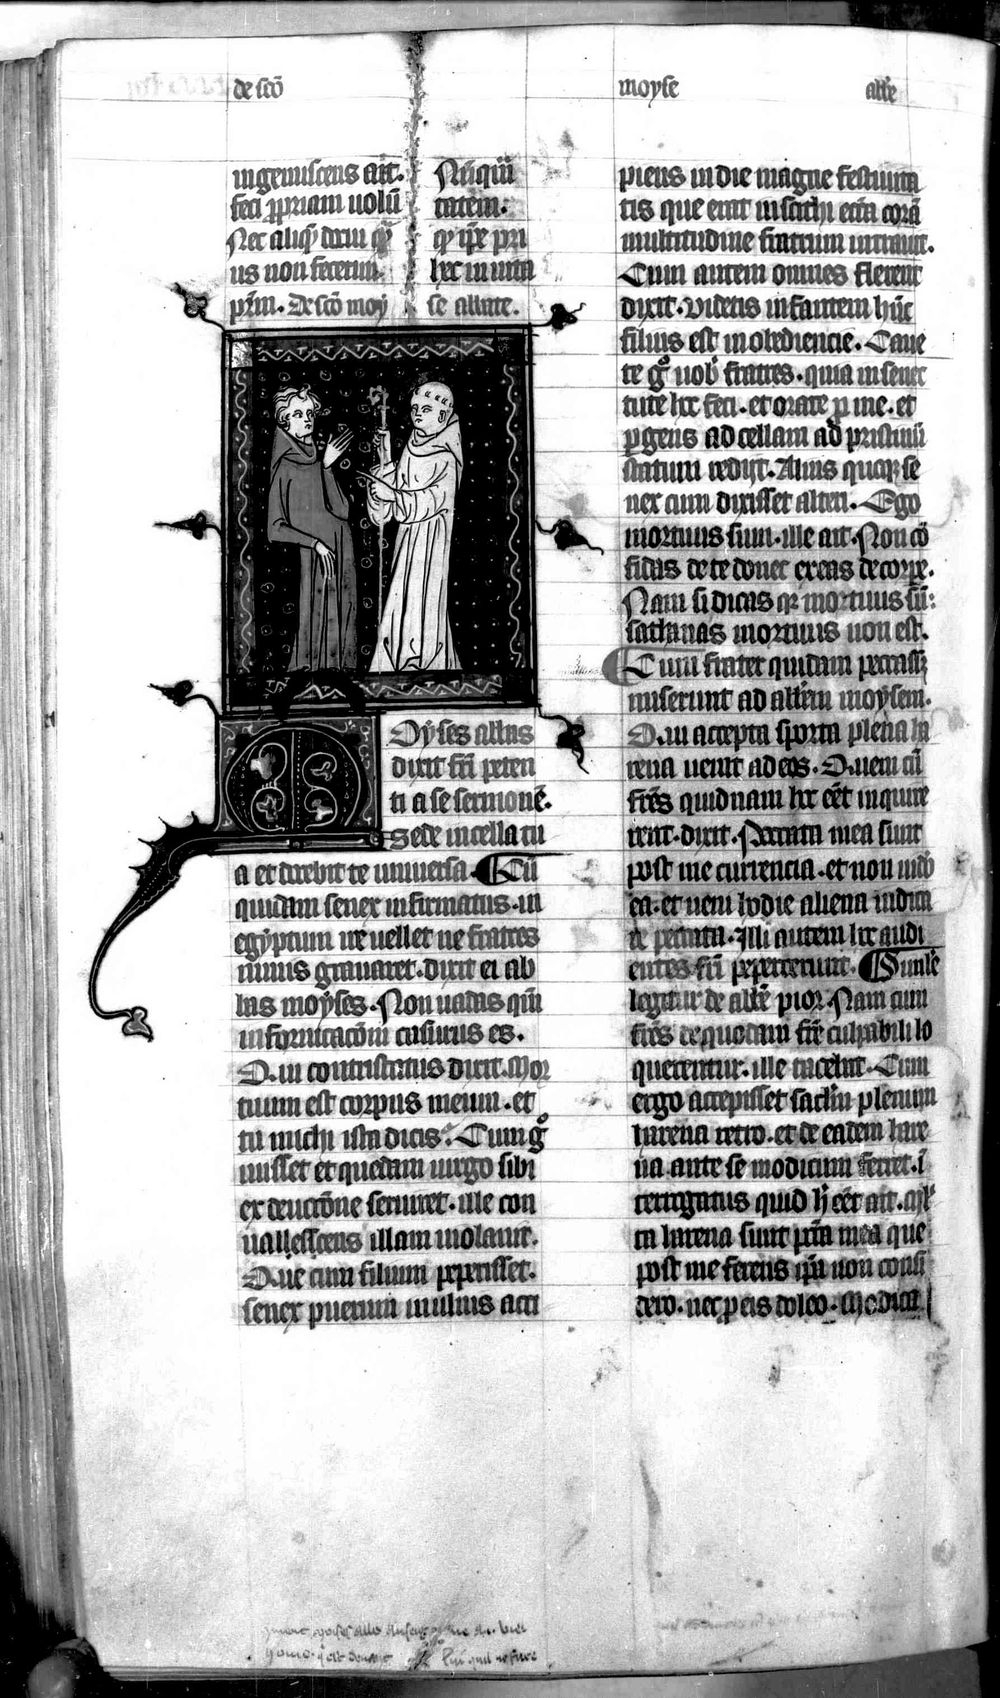 de scō moyse abb̄e
ingemiscens ait. Nūquā
feci p̱priam uolū tatem.
Nec aliqḍ dixi qḍ ip̄e pri
us non fecerim. hec in uita
pr̄m. De scō moy se abbate.
Oyses abbas
dixit fr̄i peten
ti a se sermonē.
Sede in cella tu
a et docebit te uniuersa. Cū
quidam senex infirmatus in
egyptum ire uellet ne fratres
nimis grauaret. dixit ei ab
bas moyses. Non uadas qm̄
in fornicacōm casurus es.
Qui contristatus dixit. Mor
tuum est corpus meum. et
tu michi ista dicis. Cum gͦ
iuisset et quedam uirgo sibi
ex deuocōne seruiret. ille con
ualescens illam uiolauit.
Que cum filium peperisset.
senex puerum in ulnis acci
piens in die magne festiuita
tis que erat in scithi ecc̄ia corā
multitudine fratrum intrauit.
Cum autem omnes flerent
dixit. Videtis infantem hūc
filius est inobediencie. Caue
te gͦ uob̄ fratres. quia in senec
tute hec feci. et orate p̱ me. et
p̱gens ad cellam ad pristinū
statum redijt. Alius quoqꝫ se
nex cum dixisset alteri. Ego
mortuus sum. ille ait. Non cō
fidas de te donec exeas de corpe.
Nam si dicas qꝛ mortuus sū:
sathanas mortuus non est.
Cum frater quidam peccassꝫ
miserunt ad abb̄em moysem.
Qui accepta sporta plena ha
rena uenit ad eos. Quem cū
fr̄es quidnam hec eēt inquire
rent. dixit. Peccata mea sunt
post me currencia. et non uideo
ea. et ueni hodie aliena iudica
re peccata. Illi autem hec audi
entes fr̄i pepercerunt. Simile
legitur de abb̄e pior. Nam cum
fr̄es de quodam fr̄e culpabili lo
querentur. ille tacebat. Cum
ergo accepisset saccū plenum
harena retro. et de eadem hare
na ante se modicum ferret. ī
terrogatus quid h̄ eēt ait. Ml̄
ta harena sunt pcc̄a mea que
post me ferens qm̄ non consi
dero. nec p̱ eis doleo. Modica